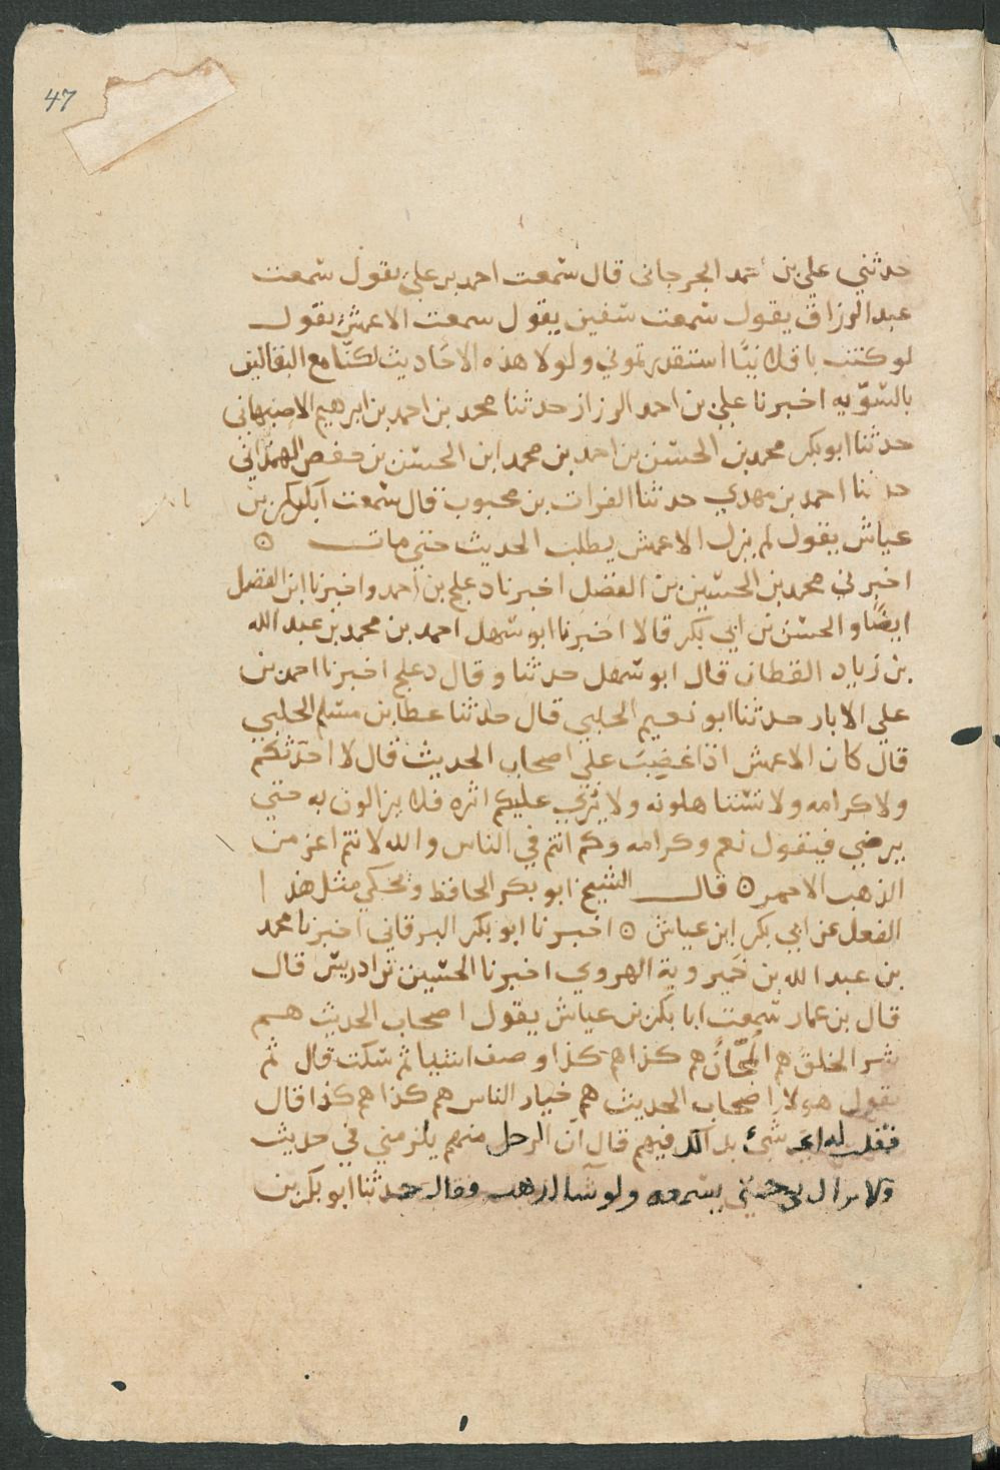 47
حدثني علي بن احمد الجرجاني قال سمعت احمد بن علي يقول سمعت
عبد الرزاق يقول سمعت سفين يقول سمعت الاعمش يقول
لو كنت باقلانيًّا استقذرتموني ولولا هذه الاحاديث لكنّا مع البقالين
بالسّويه اخبرنا علي بن احمد الرزاز حدثنا محمد بن احمد بن ابرهيم الاصبهاني
حدثنا ابو بكر محمد بن الحسن بن احمد بن محمد ابن الحسن بن حفص الهمداني
حدثنا احمد بن مهدي حدثنا الفرات بن محبوب قال سمعت ابا بكر بن
عياش يقول لم يزل الاعمش يطلب الحديث حتي مات ○
اخبرني محمد بن الحسين بن الفضل اخبرنا دعلج بن احمد واخبرنا ابن الفضل
ايضًا والحسن بن ابي بكر قالا اخبرنا ابو سهل احمد بن محمد بن عبد الله
بن زياد القطان قال ابو سهل حدثنا وقال دعلج اخبرنا احمد بن
علي الابار حدثنا ابو نعيم الحلبي قال حدثنا عطا بن مسلم الحلبي
قال كان الاعمش اذا غضب علي اصحاب الحديث قال لا احدّثكم
ولا كرامه ولا تستاهلونه ولا يُري عليكم اثره فلا يزالون به حتي
يرضي فيقول نعم وكرامه وكم انتم في الناس والله لانتم اعز من
الذهب الاحمر ○ قال الشيخ ابو بكر الحافظ وتحكي مثل هذا
الفعل عن ابي بكر ابن عياش ○ اخبرنا ابو بكر البرقاني اخبرنا محمد
بن عبد الله بن خميرويه الهروي اخبرنا الحسين بن ادريس قال
قال بن عمار سمعت ابا بكر بن عياش يقول اصحاب الحديث هم
شر الخلق هم المجّان هم كذا هم كذا وصف اشيا ثم سكت قال ثم
يقول هولا اصحاب الحديث هم خيار الناس هم كذا هم كذا قال
فقلت له اي شيء بدا لك فيهم قال ان الرجل منهم يلزمني في حديث
ولا يزال بي حتي يسمعه ولو شا لذهب وقال حدثنا ابو بكر بن